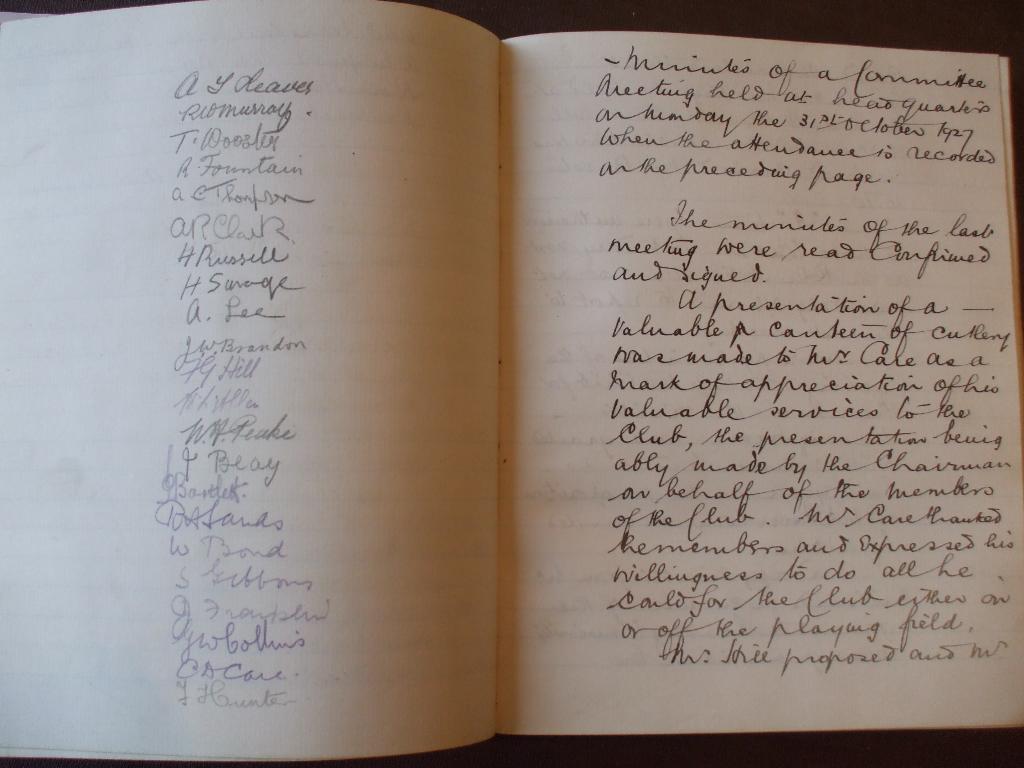 A Y Cleaver
R W Murray.
T. Wooster
R Fountain
A C Thompson
A R Clark
H Russell
H Savage
A. Lee
J W Brandon
F G Hill
Allen
W. H. Peake
J Beay
J Bartlett.
Sands
W Bond
S Gibbons
J Franklin
G W Collins
C D Care.
F Hunter
Minutes of a Committee
Meeting held at headquarters
on Monday the 31st October 1927
when the attendance is recorded
on the preceding page.
The minutes of the last
meeting were read Confirmed
and signed.
A presentation of a —
valuable canteen of cutlery
was made to Mr Care as a
mark of appreciation of his
valuable services to the
Club, the presentation being
ably made by the Chairman
on behalf of the members
of the Club. Mr Care thanked
the members and expressed his
willingness to do all he
could for the Club either on
or off the playing field.
Mr. Hill proposed and Mr